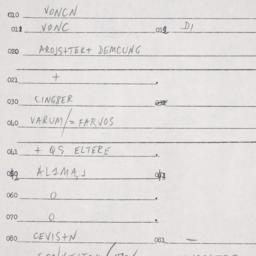 010 VONCN
011 VONC DI
020 AROJS+TER+ DEMCUNG
021 +
030 CINGBER
040 VARUM/= FARVOS
041 + QS ELTERE
ALIMA,J
060 0
070 0
080 CEVIS+N 081 –